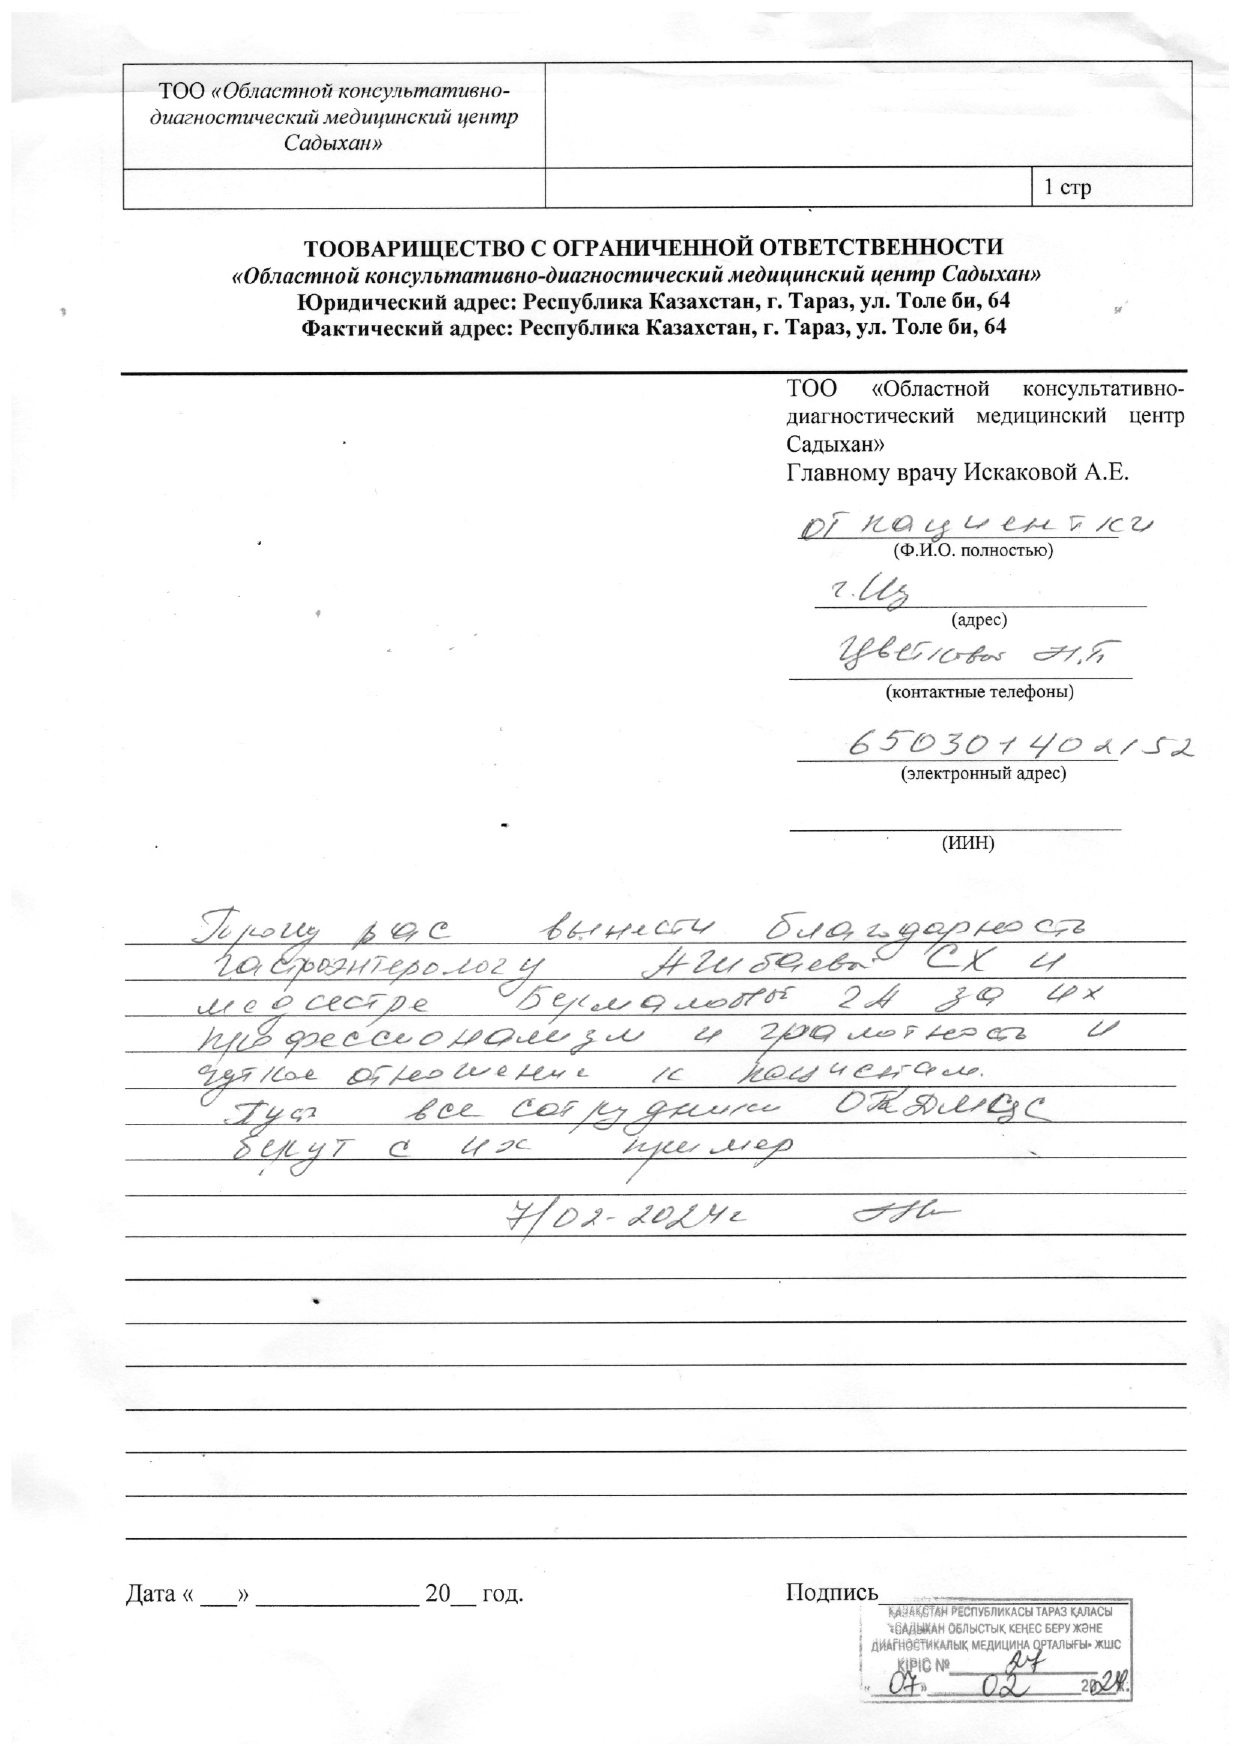 ТОО «Областной консультативно-
диагностический медицинский центр
Садыхан»
1 стр
ТООВАРИЩЕСТВО С ОГРАНИЧЕННОЙ ОТВЕТСТВЕННОСТИ
«Областной консультативно-диагностический медицинский центр Садыхан»
Юридический адрес: Республика Казахстан, г. Тараз, ул. Толе би, 64
Фактический адрес: Республика Казахстан, г. Тараз, ул. Толе би, 64
ТОО «Областной консультативно-
диагностический медицинский центр
Садыхан»
Главному врачу Искаковой А.Е.
от пациентки
(Ф.И.О. полностью)
(адрес)
Цветковой Н.П
(контактные телефоны)
650301402152
(электронный адрес)
(ИИН)
Прошу вас вынести благодарность
гастроэнтерологу СХ и
медсестре за их
профессионализм и грамотность и
чуткое отношение к пациентам.
все сотрудники
берут с их пример
7/02-2024г
Дата « ___» ______________ 20__ год.
Подпись
ҚАЗАҚСТАН РЕСПУБЛИКАСЫ ТАРАЗ ҚАЛАСЫ
«САДЫХАН ОБЛЫСТЫҚ КЕҢЕС БЕРУ ЖӘНЕ
ДИАГНОСТИКАЛЫҚ МЕДИЦИНА ОРТАЛЫҒЫ» ЖШС
КІРІС № 27
«07» 02 2024.